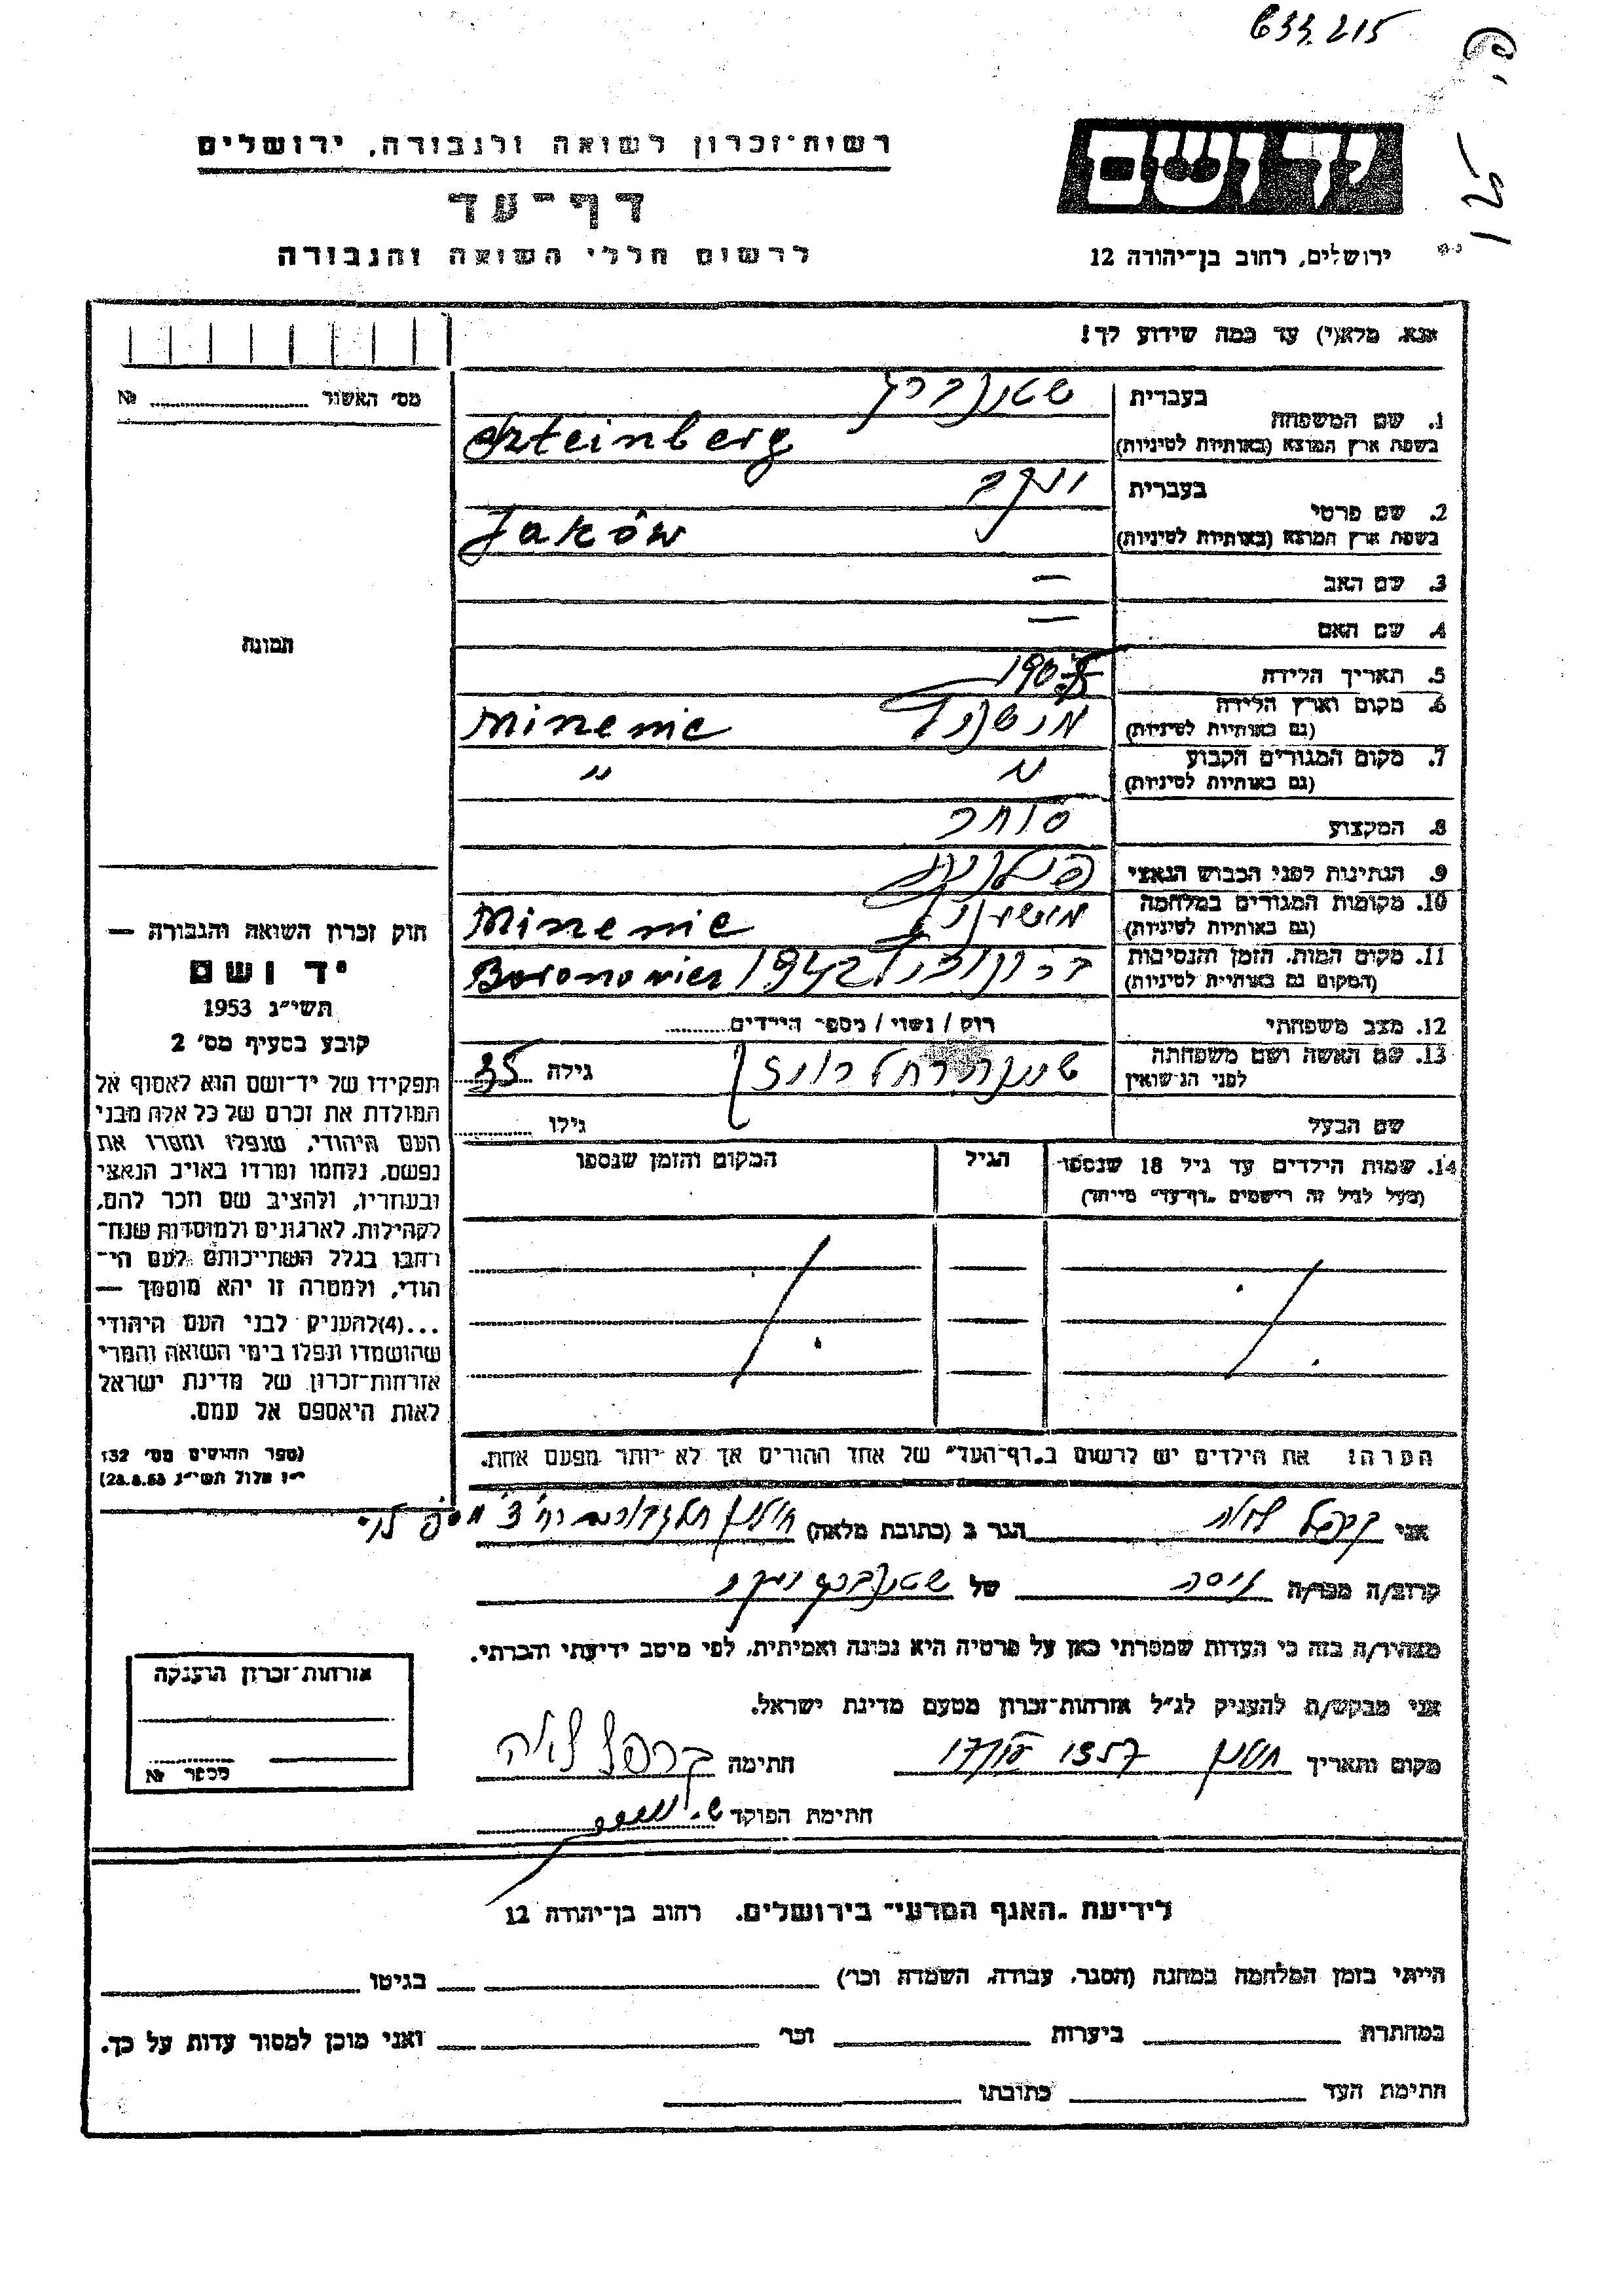 633.215
רשות־זכרון לשואה ולגבורה, ירושלים
דף־עד
לרשום חללי השואה והגבורה
ידושם
ירושלים, רחוב בן־יהודה 12
אנא, מלא(י) עד כמה שידוע לך!
מס׳ האשור № 
1. שם המשפחה
בעברית שטנברג
בשפת ארץ המוצא (באותיות לטיניות) Szteinberg
2. שם פרטי
בעברית יעקב
בשפת ארץ המוצא (באותיות לטיניות) Jaków
3. שם האב —
4. שם האם —
5. תאריך הלידה
6. מקום וארץ הלידה
(גם באותיות לטיניות)
7. מקום המגורים הקבוע
(גם באותיות לטיניות) " "
8. המקצוע סוחר
9. הנתינות לפני הכבוש הנאצי פולנית
10. מקומות המגורים במלחמה
(גם באותיות לטיניות)
11. מקום המות, הזמן והנסיבות
(המקום גם באותיות לטיניות) 1942
12. מצב משפחתי רוק / נשוי / מספר הילדים
13. שם האשה ושם משפחתה
לפני הנישואין גילה 35
שם הבעל גילו
14. שמות הילדים עד גיל 18 שנספו
(מעל לגיל זה רישמים „דף־עד״ מיוחד)
הגיל
המקום והזמן שנספו
הערה: את הילדים יש לרשום ב„דף־העד״ של אחד ההורים אך לא יותר מפעם אחת.
תמונה
חוק זכרון השואה והגבורה —
יד ושם
תשי״ג 1953
קובע בסעיף מס׳ 2
תפקידו של יד־ושם הוא לאסוף אל
המולדת את זכרם של כל אלה מבני
העם היהודי, שנפלו ומסרו את
נפשם, נלחמו ומרדו באויב הנאצי
ובעוזריו, ולהציב שם וזכר להם,
לקהילות, לארגונים ולמוסדות שנח־
רבו בגלל השתייכותם לעם הי־
הודי, ולמטרה זו יהא מוסמך —
...(4) להעניק לבני העם היהודי
שהושמדו ונפלו בימי השואה והמרי
אזרחות־זכרון של מדינת ישראל
לאות היאספם אל עמם.
(ספר החוקים מס׳ 132
י״ז אלול תשי״ג 28.8.53)
אני הגר ב (כתובת מלאה)
קרוב/ה מכר/ה גיסה של שטנברג יעקב
מצהיר/ה בזה כי העדות שמסרתי כאן על פרטיה היא נכונה ואמיתית, לפי מיטב ידיעתי והכרתי.
אני מבקש/ת להעניק לנ״ל אזרחות־זכרון מטעם מדינת ישראל.
מקום ותאריך 1957 חתימה
חתימת הפוקד
אזרחות־זכרון הוענקה
מספר №
לידיעת „האגף המדעי״ בירושלים, רחוב בן־יהודה 12
הייתי בזמן המלחמה במחנה (הסגר, עבודה, השמדה וכו׳) בגיטו
במחתרת ביערות וכו׳ ואני מוכן למסור עדות על כך.
חתימת העד כתובתו